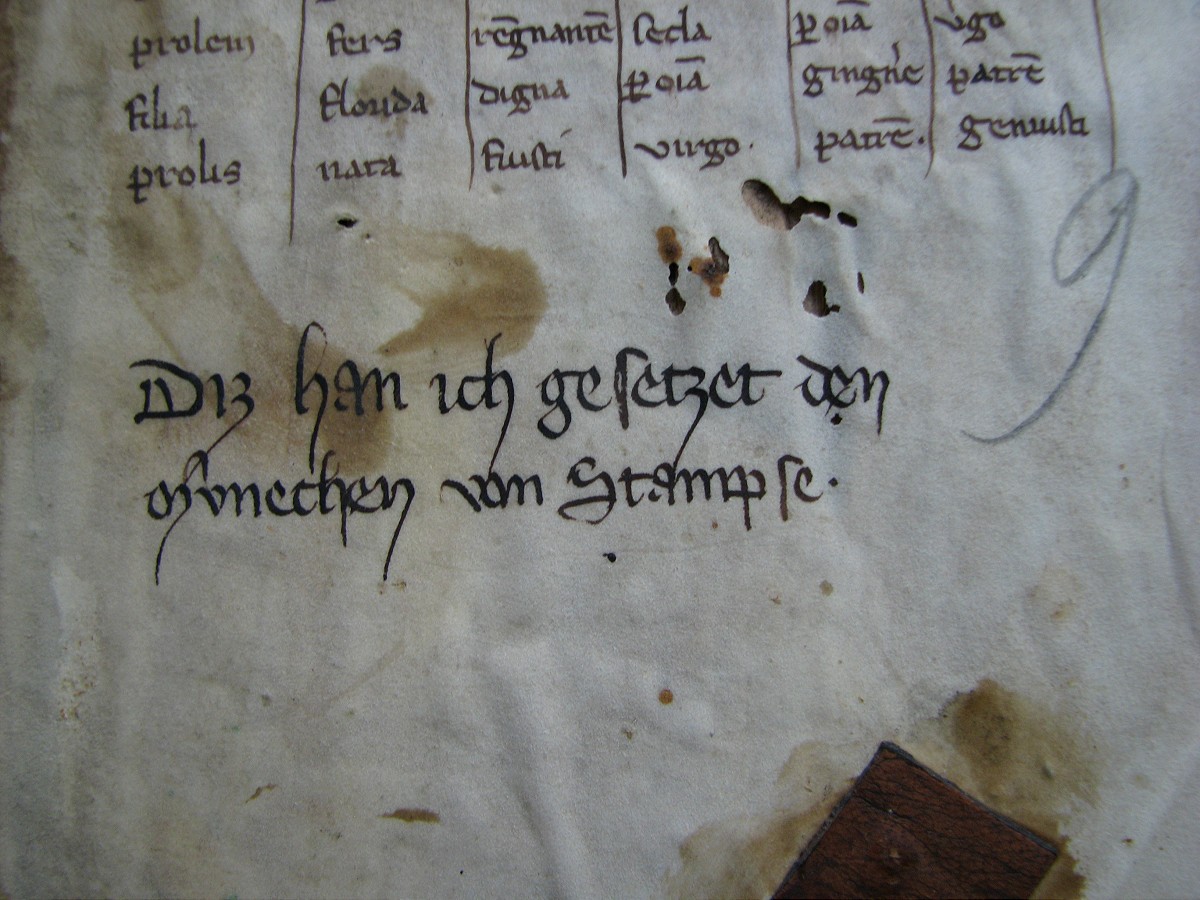 prolem fers rēgnantē secla ꝑ oīa v̇go
filia florida digna ꝑ oīa gingn̍e patrē
prolis nata fuisti virgo. patrē. genuisti
Diz han ich gesetzet den
Mvnechen von Stampse.
9